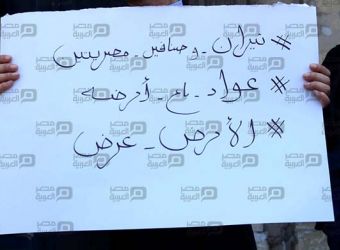 # تيران - وصنافير - مصريين
# عواد - باع - أرضه
# الأرض - عرض
مصر العربية